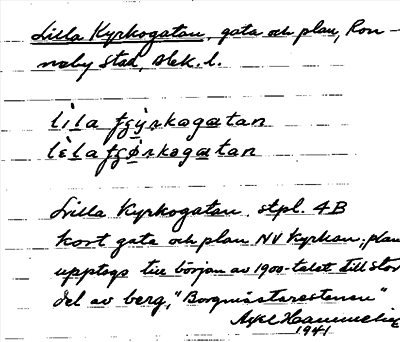 Lilla Kyrkogatan, gata och plan, Ron-
neby stad, Blek. l.
lìla fçỳrkogatan
lèla fçø̀rkogatan
Lilla Kyrkogatan. stpl. 4B
kort gata och plan NV kyrkan; plan
upptogs till början av 1900-talet till stor
del av berg, "Borgmästarestenen"
Axel
1941